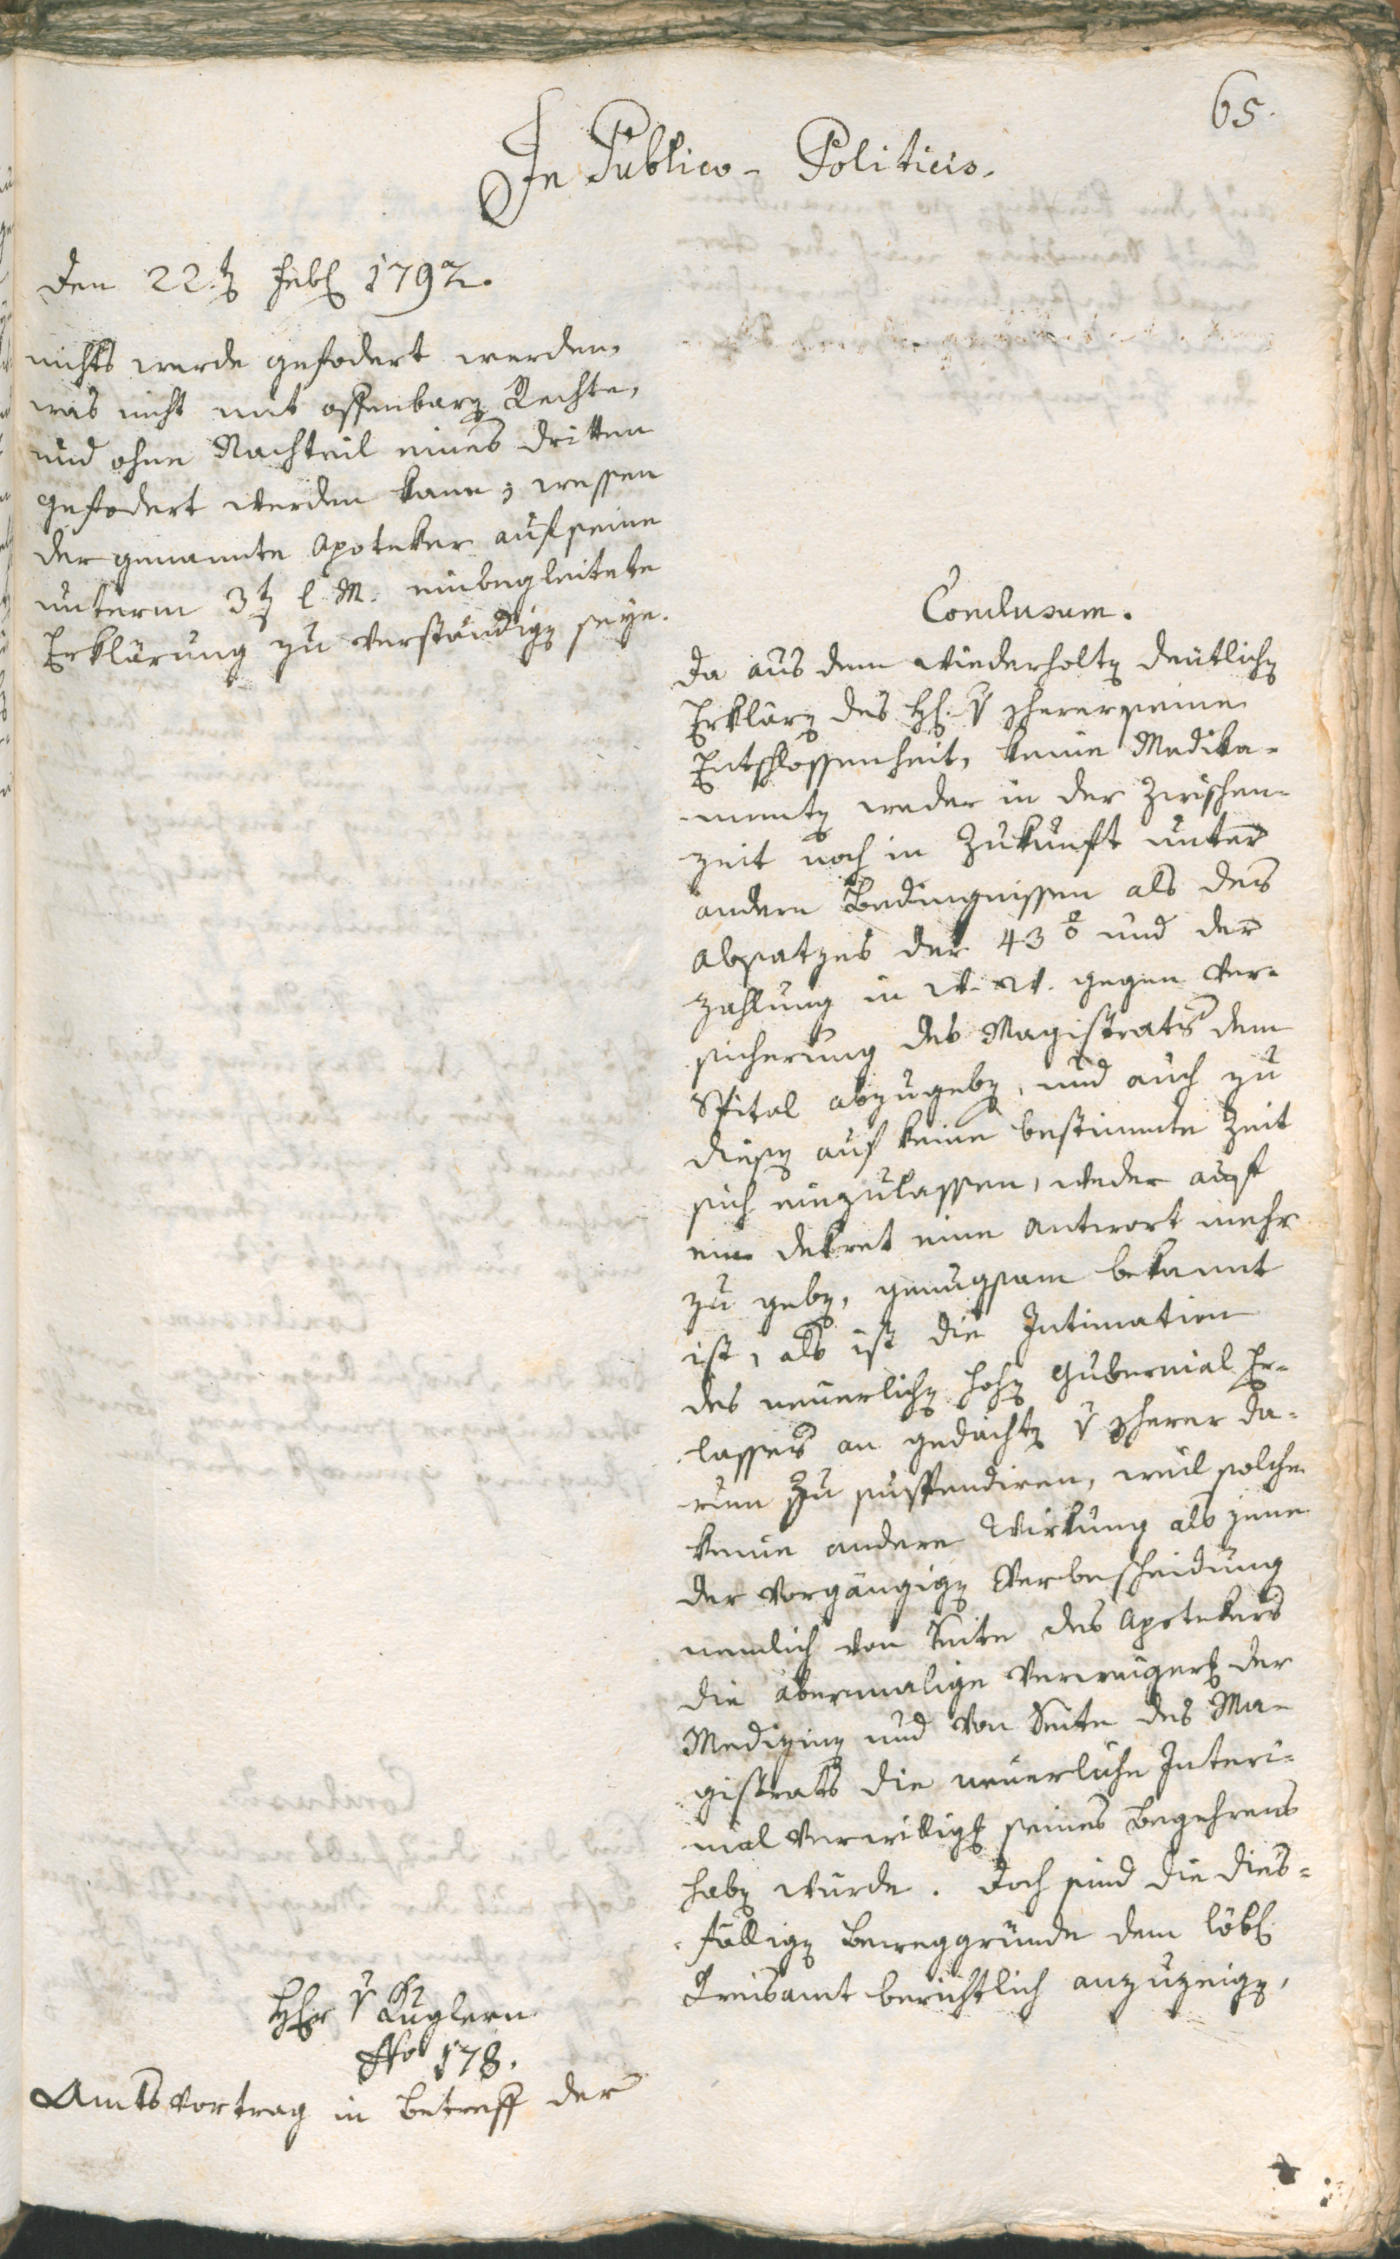 65.
In Publico-Politicis.
Den 22.t Feb. 1792.
nichts werde gefodert werden,
was nicht mit offenbarn Rechte,
und ohne Nachteil eines dritten
gefodert werden kann; wessen
der genannte Apoteker auf seine
unterm 3t l. M. einbegleitete
Erklärung zu verständign seye.
Conclusum.
Da aus dem wiederholtn deutlichn
Erklärn des H. v scherer seine
Entschlossenheit, keine Medika-
mentn weder in der Zwischen-
zeit noch in Zukunft unter
andern Bedingnissen als des
Absatzes der 43 % und der
Zahlung in W. W. gegen Ver-
sicherung des Magistrats dem
Spital abzugebn, und auch zu
diesn auf keine bestimmte Zeit
sich einzulassen, weder auf
ein Dekret eine Antwort mehr
zu gebn, genugsam bekannt
ist, als ist die Intimation
des neuerlichn hohn Gubernial Er-
lasses an gedachtn v scherer da-
rum zu suspendiren, weil solche
keine andere Wirkung als jene
der vorgängign Verbescheidung
nemlich von Seite des Apotekers
die abermalige Verweiger der
Medizinn und von Seite des Ma-
gistrats die neuerliche Interi-
mal Verwillig seines Begehrens
habn wurde. Doch sind die dies-
fällign Beweggründe dem löbl.
Kreisamt berichtlich anzuzeign,
H v Kuglern
Nro 178.
Amtsvortrag in Betreff der